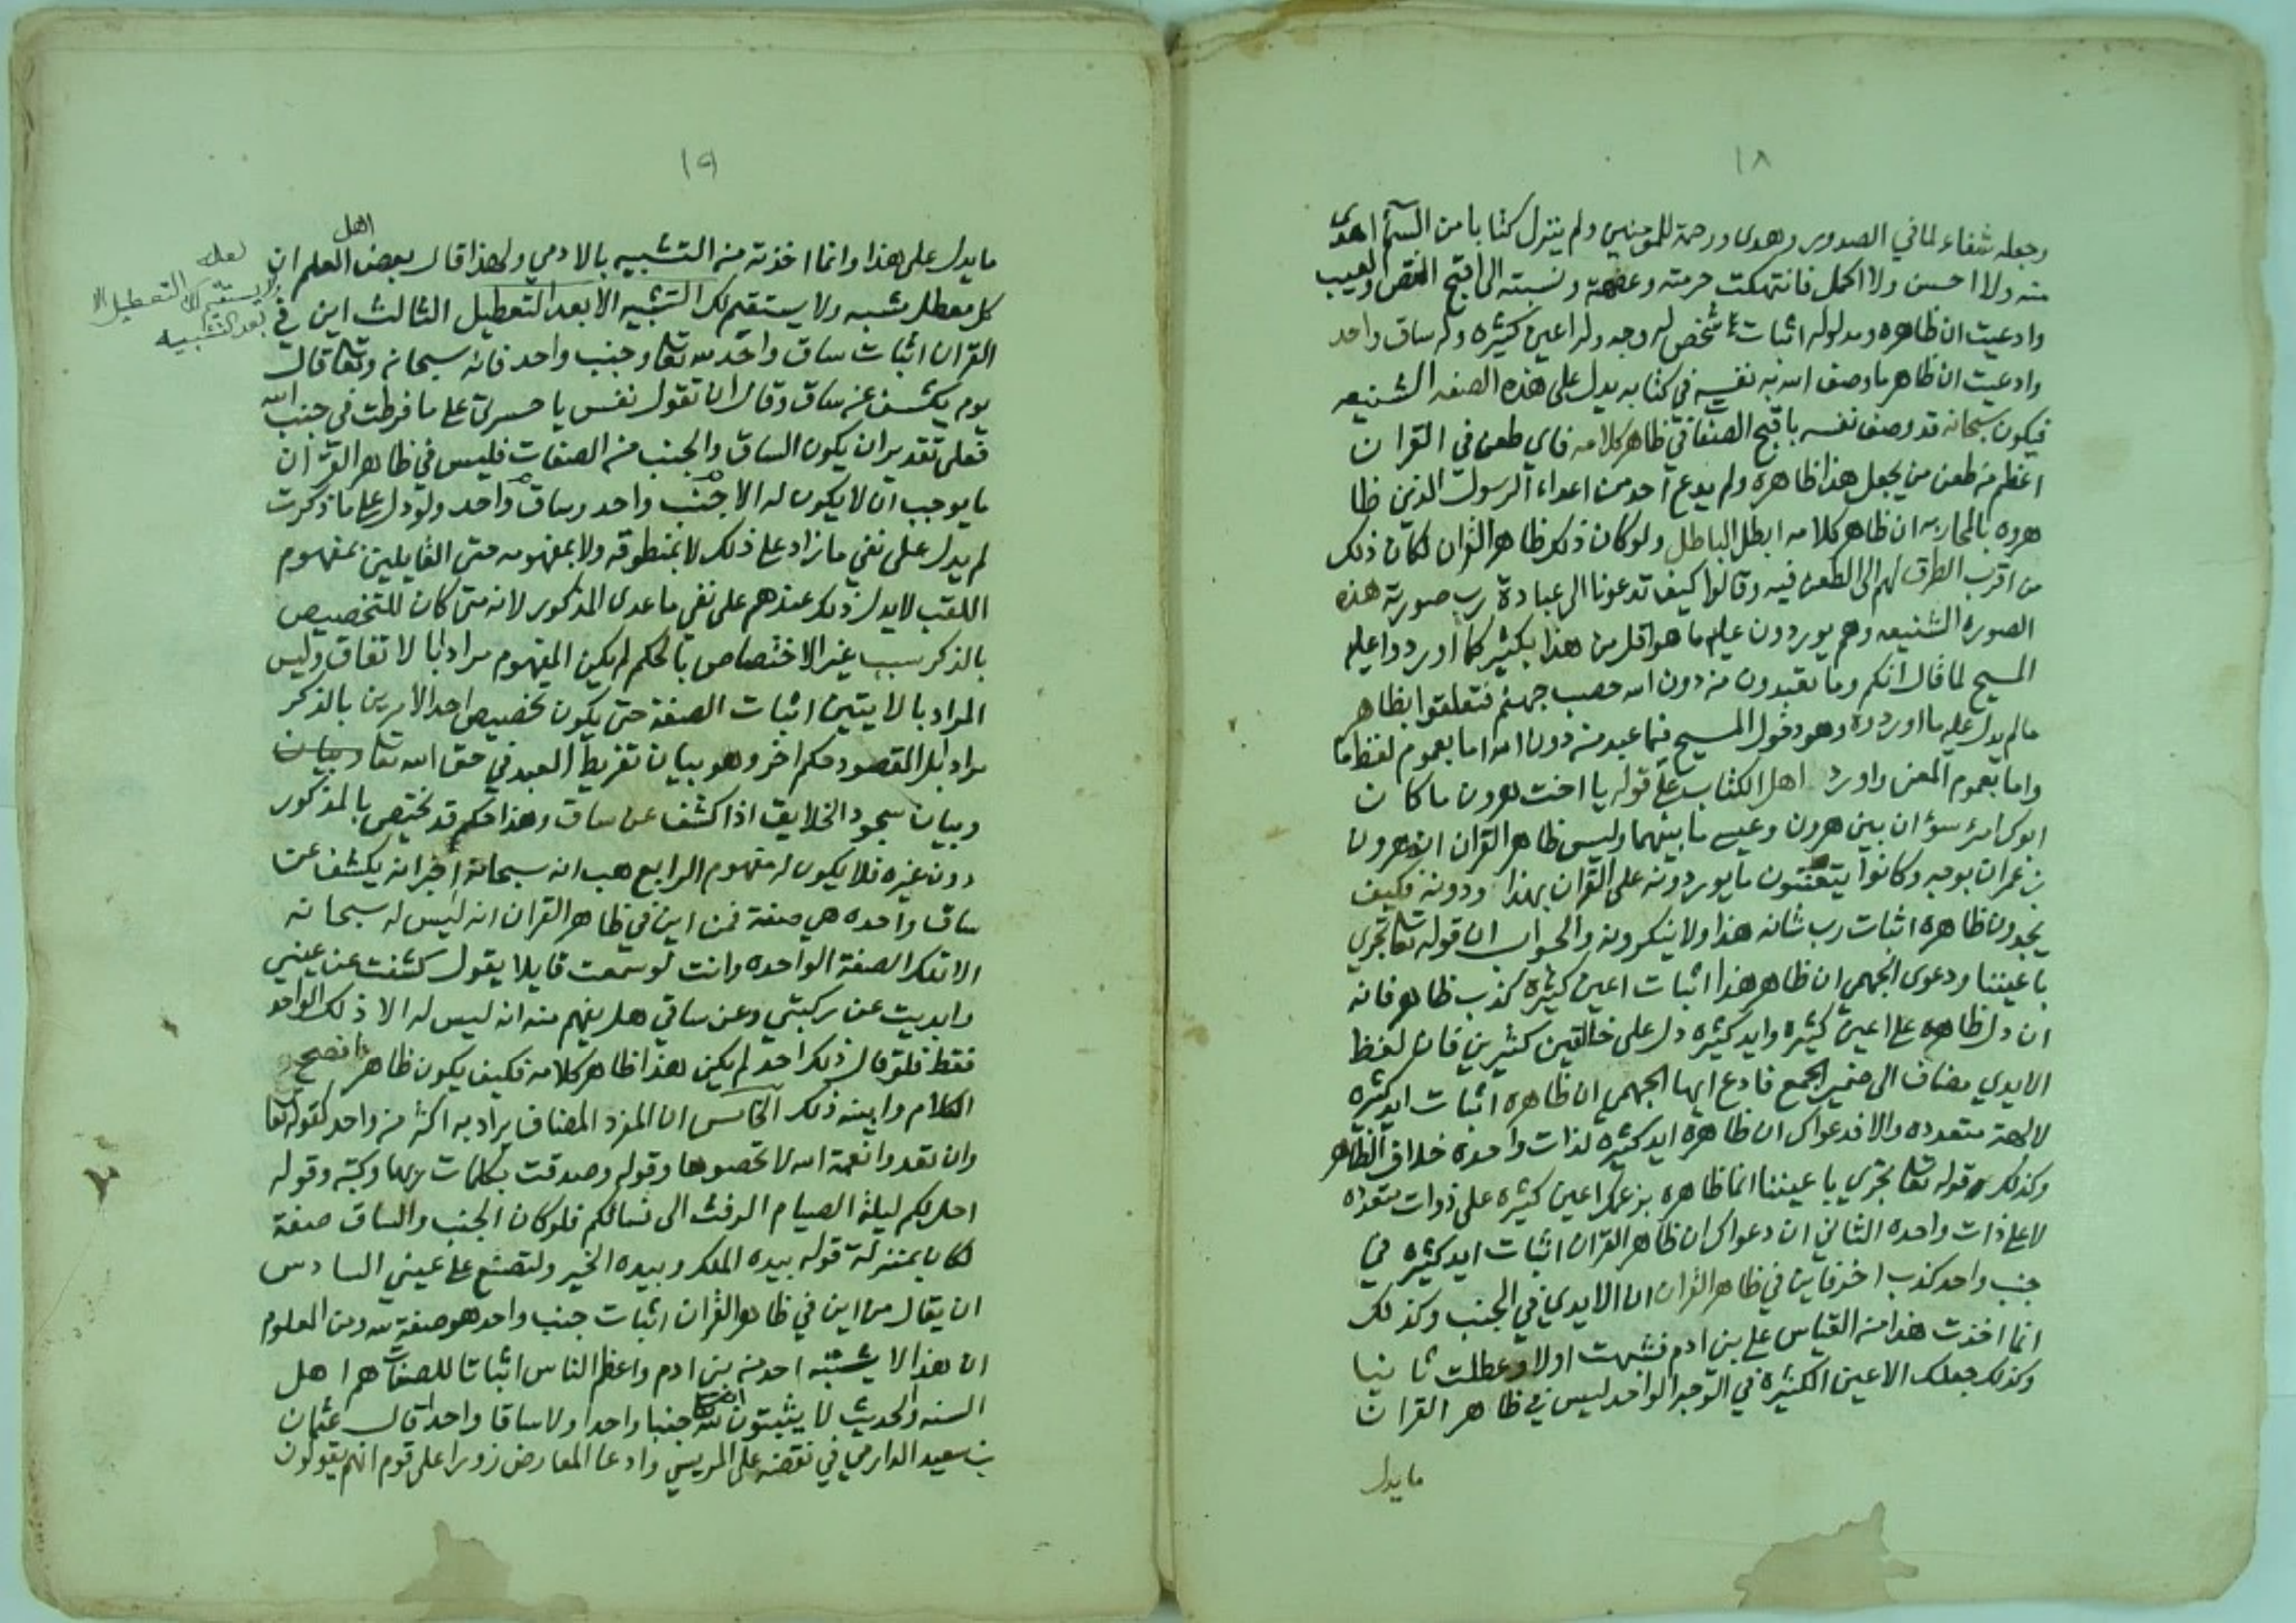 ١٨
وجعله شفاء لما في الصدور وهدى ورحمة للمؤمنين ولم ينزل كتابا من السماء اهدى
منه ولا احسن ولا اكمل فانتهكت حرمته وعضهته ونسبته الى اقبح النقص والعيب
وادعيت ان ظاهره ومدلوله اثبات شخص له وجه وله اعين كثيره وله ساق واحد
وادعيت ان ظاهر ما وصف الله به نفسه في كتابه يدل على هذه الصفه الشنيعه
فيكون سبحانه قد وصف نفسه باقبح الصفات في ظاهر كلامه فاي طعن في القران
اعظم من طعن من يجعل هذا ظاهره ولم يدع احد من اعداء الرسول الذين ظا
هروه بالمحاربه ان ظاهر كلامه ابطل الباطل ولو كان ذلك ظاهر القران لكان ذلك
من اقرب الطرق لهم الى الطعن فيه وقالوا كيف تدعونا الى عبادة رب صورته هذه
الصوره الشنيعه وهم يوردون عليه ما هو اقل من هذا بكثير كما اوردوا عليه
المسيح لما قال انكم وما تعبدون من دون الله حصب جهنم فتعلقوا بظاهر
ما لم يدل عليه ما اوردوه وهو دخول المسيح فيما عبد من دون الله اما بعموم لفظ ما
واما بعموم المعنى واورد اهل الكتاب على قوله يا اخت هرون ما كان
ابوك امرء سوء ان بين هرون وعيسى ما بينهما وليس ظاهر القران انه هرون
بن عمران بوجه وكانوا يتعنتون ما يوردونه على القران بهذا ودونه فكيف
يجدون ظاهره اثبات رب شانه هذا ولا ينكرونه والجواب ان قوله تعا تجري
باعيننا ودعوى الجهمي ان ظاهر هذا اثبات اعين كثيرة كذب ظاهر فانه
ان دل ظاهره على اعين كثيره وايد كثيره دل على خالقين كثيرين فان لفظ
الايدي مضاف الى ضمير الجمع فادع ايها الجهمي ان ظاهره اثبات ايد كثيره
لالهة متعدده والا فدعواك ان ظاهره ايد كثيره لذات واحده خلاف الظاهر
وكذلك قوله تعا تجري باعيننا انما ظاهره بزعمك اعين كثيره على ذوات متعدده
لا على ذات واحده الثاني ان دعواك ان ظاهر القران اثبات ايد كثيره في
جنب واحد كذب اخر فاين في ظاهر القران ان الايدي في الجنب وكذلك
انما اخذت هذا من القياس على بني ادم فشبهت اولا وعطلت ثانيا
وكذلك جعلك الاعين الكثيرة في الوجه الواحد ليس في ظاهر القران
ما يدل
١٩
ما يدل على هذا وانما اخذته من التشبيه بالادمي ولهذا قال بعض اهل العلم ان
كل معطل مشبه ولا يستقيم لك التشبيه الا بعد التعطيل الثالث اين في
لعله
لا يستقيم لك التعطيل الا
بعد التشبيه
القران اثبات ساق واحد لله تعا وجنب واحد فانه سبحانه وتعا قال
يوم يكشف عن ساق وقال ان تقول نفس يا حسرتى على ما فرطت في جنب الله
فعلى تقدير ان يكون الساق والجنب من الصفات فليس في ظاهر القران
ما يوجب ان لا يكون له الا جنب واحد وساق واحد ولو دل على ما ذكرت
لم يدل على نفي ما زاد على ذلك لا بمنطوقه ولا بمفهومه حتى القايلين بمفهوم
اللقب لا يدل ذلك عندهم على نفي ما عدى المذكور لانه متى كان للتخصيص
بالذكر سبب غير الاختصاص بالحكم لم يكن المفهوم مرادا بالاتفاق وليس
المراد بالايتين اثبات الصفة حتى يكون تخصيص احد الامرين بالذكر
مرادا بل المقصود حكم اخر وهو بيان تفريط العبد في حق الله تعا وبيان
وبيان سجود الخلايق اذا كشف عن ساق وهذا حكم قد يختص بالمذكور
دون غيره فلا يكون له مفهوم الرابع هب انه سبحانه اخبر انه يكشف عن
ساق واحده هي صفة فمن اين في ظاهر القران انه ليس له سبحانه
الا تلك الصفة الواحده وانت لو سمعت قايلا يقول كشفت عن عيني
وابديت عن ركبتي وعن ساقي هل يفهم منه انه ليس له الا ذلك الواحد
فقط فلو قال ذلك احد لم يكن هذا ظاهر كلامه فكيف يكون ظاهر افصح
الكلام وابينه ذلك الخامس ان المفرد المضاف يراد به اكثر من واحد كقوله تعا
وان تعدوا نعمة الله لا تحصوها وقوله وصدقت بكلمات ربها وكتبه وقوله
احل لكم ليلة الصيام الرفث الى نسائكم فلو كان الجنب والساق صفة
لكان بمنزلة قوله بيده الملك وبيده الخير ولتصنع على عيني السادس
ان يقال من اين في ظاهر القران اثبات جنب واحد هو صفة لله ومن المعلوم
ان هذا لا يثبته احد من بني ادم واعظم الناس اثباتا للصفات هم اهل
السنه والحديث لا يثبتون لله جنبا واحدا ولا ساقا واحدا قال عثمان
بن سعيد الدارمي في نقضه على المريسي وادعا المعارض زورا على قوم انهم يقولون